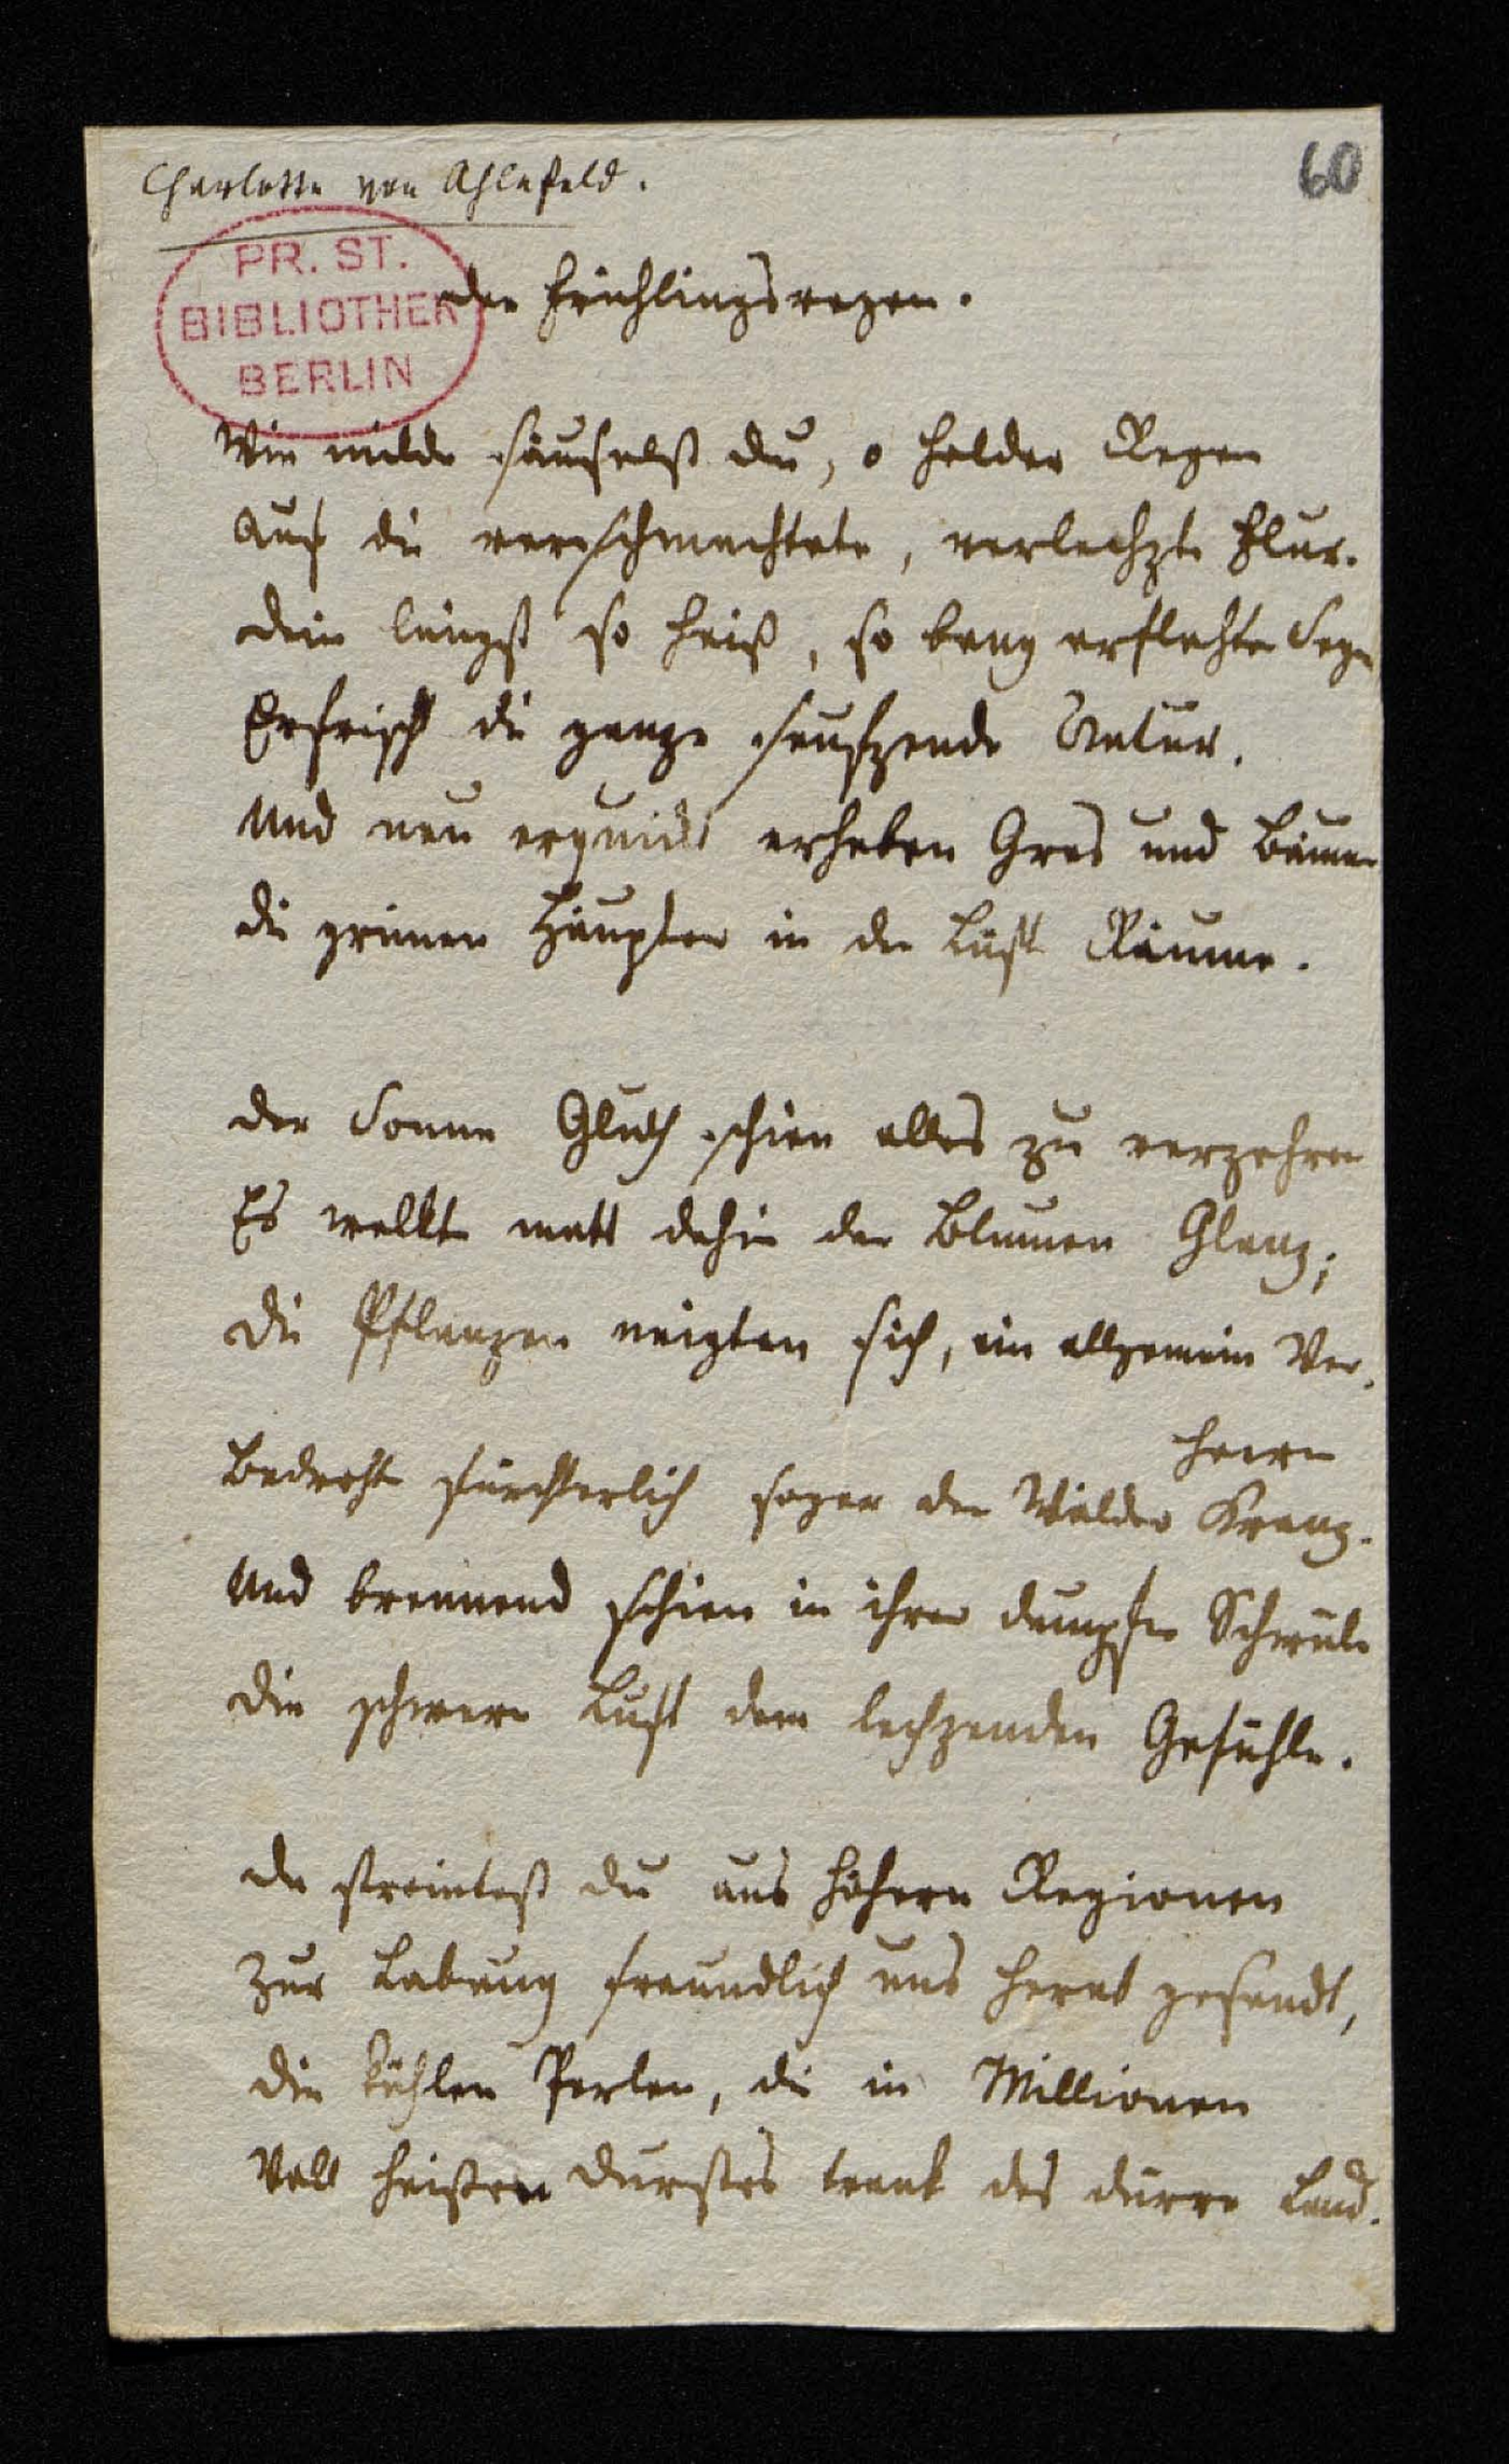 Charlotte von Ahlefeld.
60
PR. ST.
BIBLIOTHEK
BERLIN
der Frühlingsregen.
Wie milde säuselst du, o holder Regen
Auf die verschmachtete, verlechzte Flur.
dein längst so heiß, so bang erflehter Segen
Erfrischt die ganze seufzende Natur.
Und neu erquickt erheben Gras und Bäume
die grünen Häupter in der Luft Räume.
der Sonne Gluth schien alles zu verzehren
Es welkte matt dahin der Blumen Glanz;
die Pflanzen neigten sich, ein allgemein Ver-
heeren
Bedrohte fürchterlich sogar der Wälder Kranz.
Und brennend schien in ihrer dumpfen Schwüle
die schwere Luft dem lechzenden Gefühle.
da streutest du aus höhern Regionen
Zur Labung freundlich uns herab gesandt,
die kühlen Perlen, die in Millionen
Voll heißen Durstes trank das dürre Land.